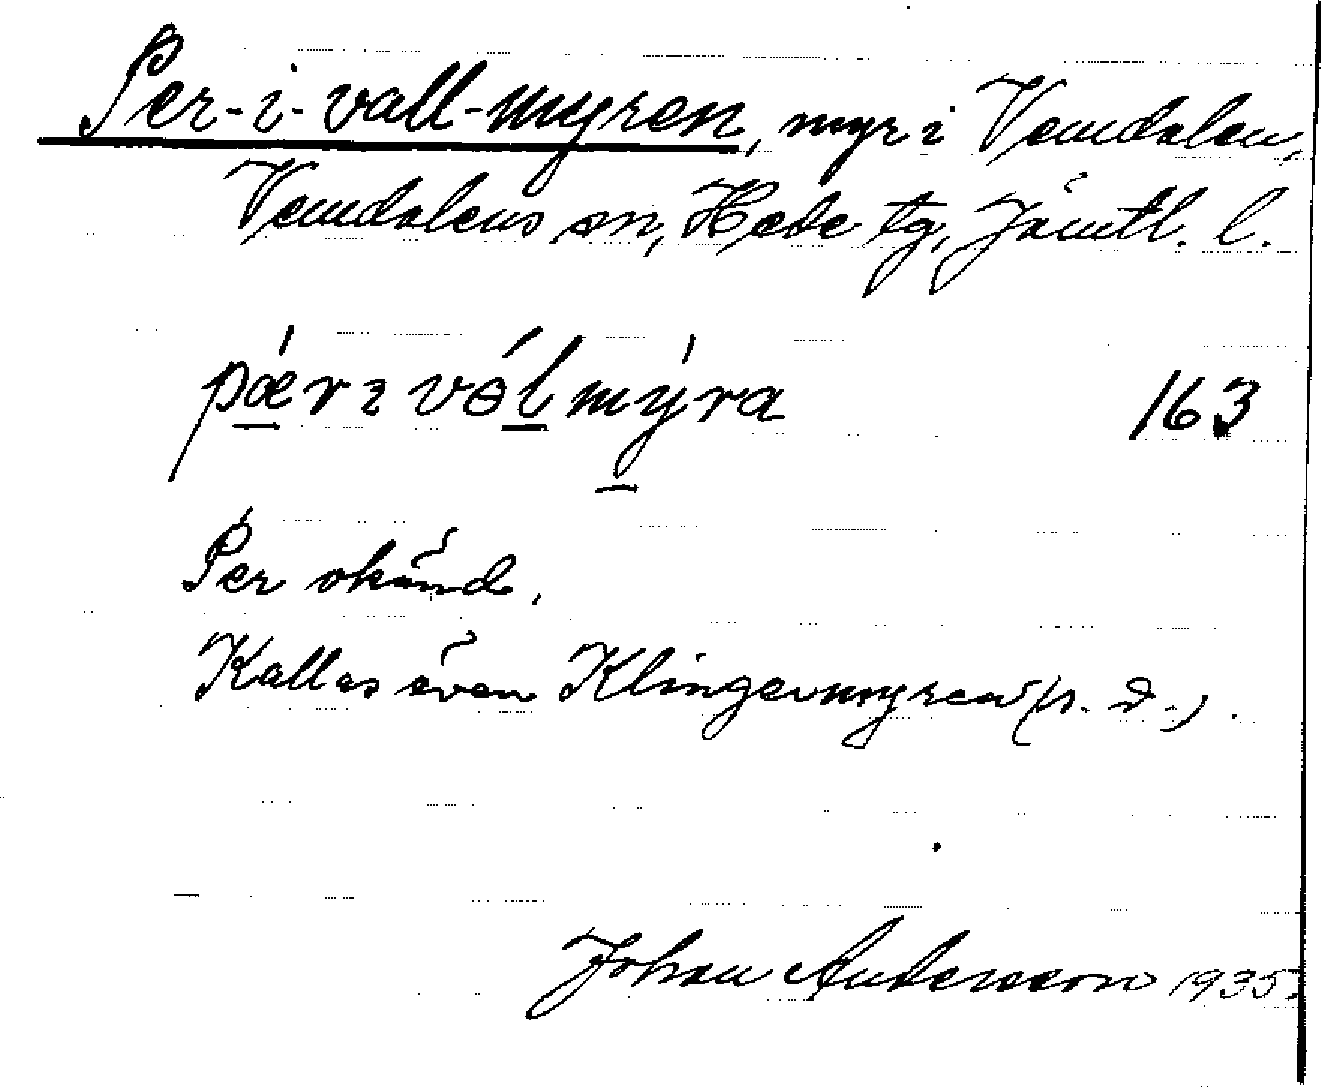 Per-i-vall-myren, myr i Vemdalen,
Vemdalens sn, Hede tg, Jämtl. l.
pǽr ı vɵ́l mýra 163
Per okänd.
Kallas även Klingermyren (s. d.).
Johan Andersson 1935.